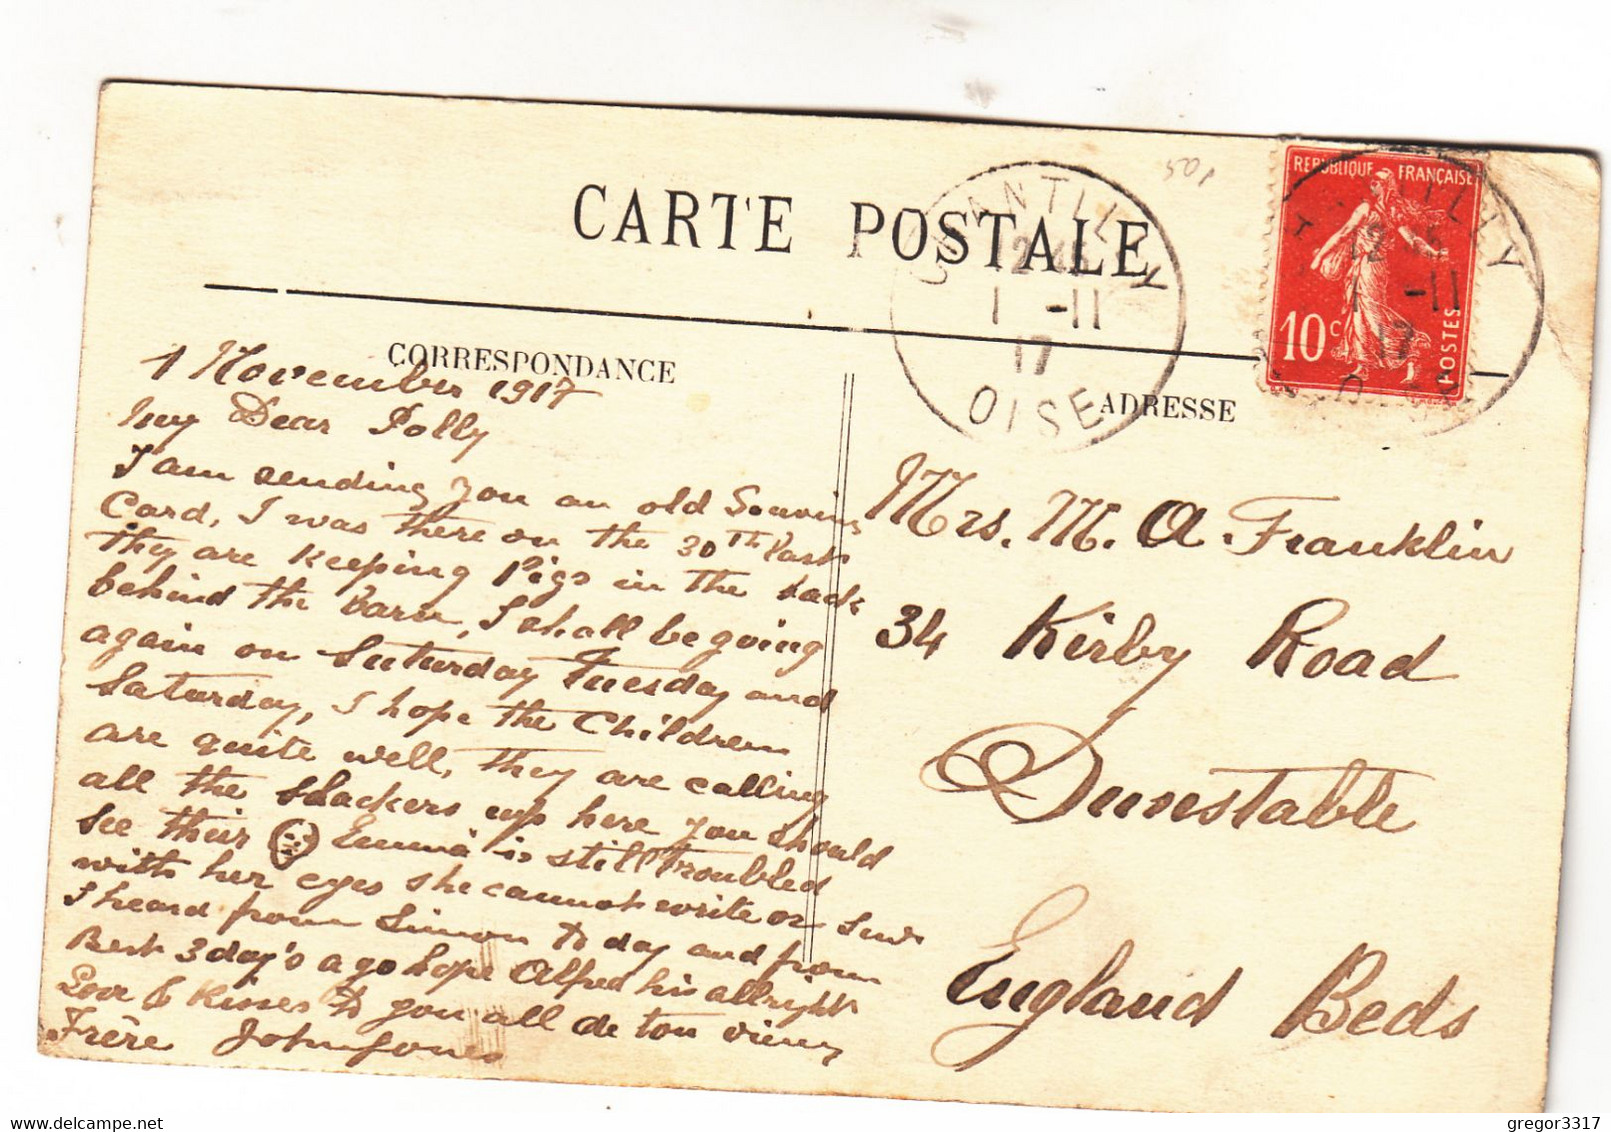 CARTE POSTALE
CORRESPONDANCE
ADRESSE
501
CHANTILLY
12 45
1 -11
17
OISE
REPUBLIQUE FRANÇAISE
10c
POSTES
1 November 1917
My Dear Polly
I am sending you an old Souvin
Card, I was there on the 30th last
they are keeping Pigs in the back
behind the barn, I shall be going
again on Saturday Tuesday and
Saturday, I hope the Children
are quite well, they are calling
all the slackers up here you should
see their Emma is still troubled
with her eyes she cannot write or sew
I heard from Simon to day and from
Bert 3 day's ago hope Alfred his allright
Love & Kisses to you all de ton vieux
Frère John Jones
Mrs. M. A. Franklin
34 Kirby Road
Dunstable
England Beds
gregor3317